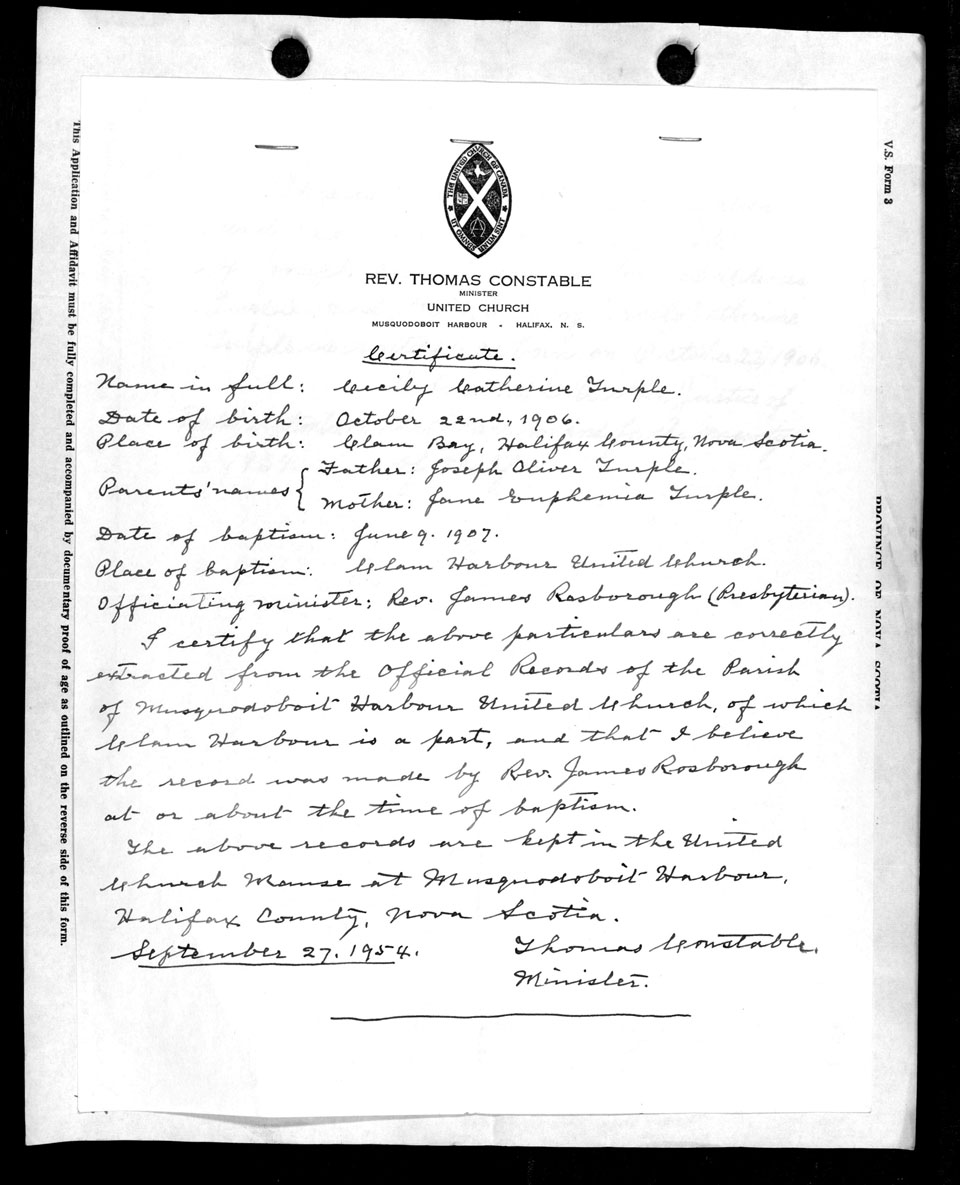 THE UNITED CHURCH OF CANADA
UT OMNES UNUM SINT
REV. THOMAS CONSTABLE
MINISTER
UNITED CHURCH
MUSQUODOBOIT HARBOUR - HALIFAX, N. S.
Certificate.
Name in full: Cecily Catherine Turple.
Date of birth: October 22nd, 1906.
Place of birth: Clam Bay, Halifax County, Nova Scotia.
Parents' names { Father: Joseph Oliver Turple.
Mother: Jane Euphemia Turple.
Date of baptism: June 9. 1907.
Place of baptism: Clam Harbour United Church.
Officiating minister: Rev. James Rosborough (Presbyterian).
I certify that the above particulars are correctly
extracted from the Official Records of the Parish
of Musquodoboit Harbour United Church, of which
Clam Harbour is a part, and that I believe
the record was made by Rev. James Rosborough
at or about the time of baptism.
The above records are kept in the United
Church Manse at Musquodoboit Harbour,
Halifax County, Nova Scotia.
September 27. 1954.
Thomas Constable.
Minister.
This Application and Affidavit must be fully completed and accompanied by documentary proof of age as outlined on the reverse side of this form.
V.S. Form 3
PROVINCE OF NOVA SCOTIA